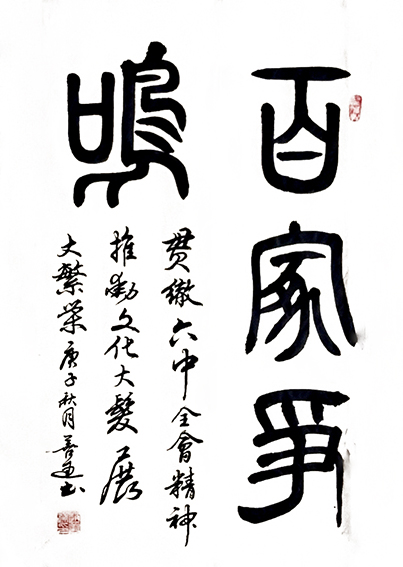 百家爭
鳴
贯徹六中全會精神
推動文化大髮展
大繁榮庚子秋月善迋书